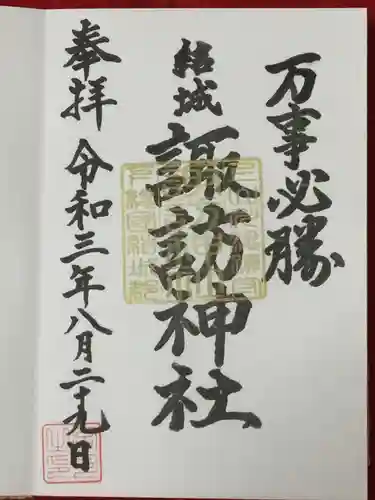 万事必勝
結城
諏訪神社
奉拝
令和三年八月二十九日